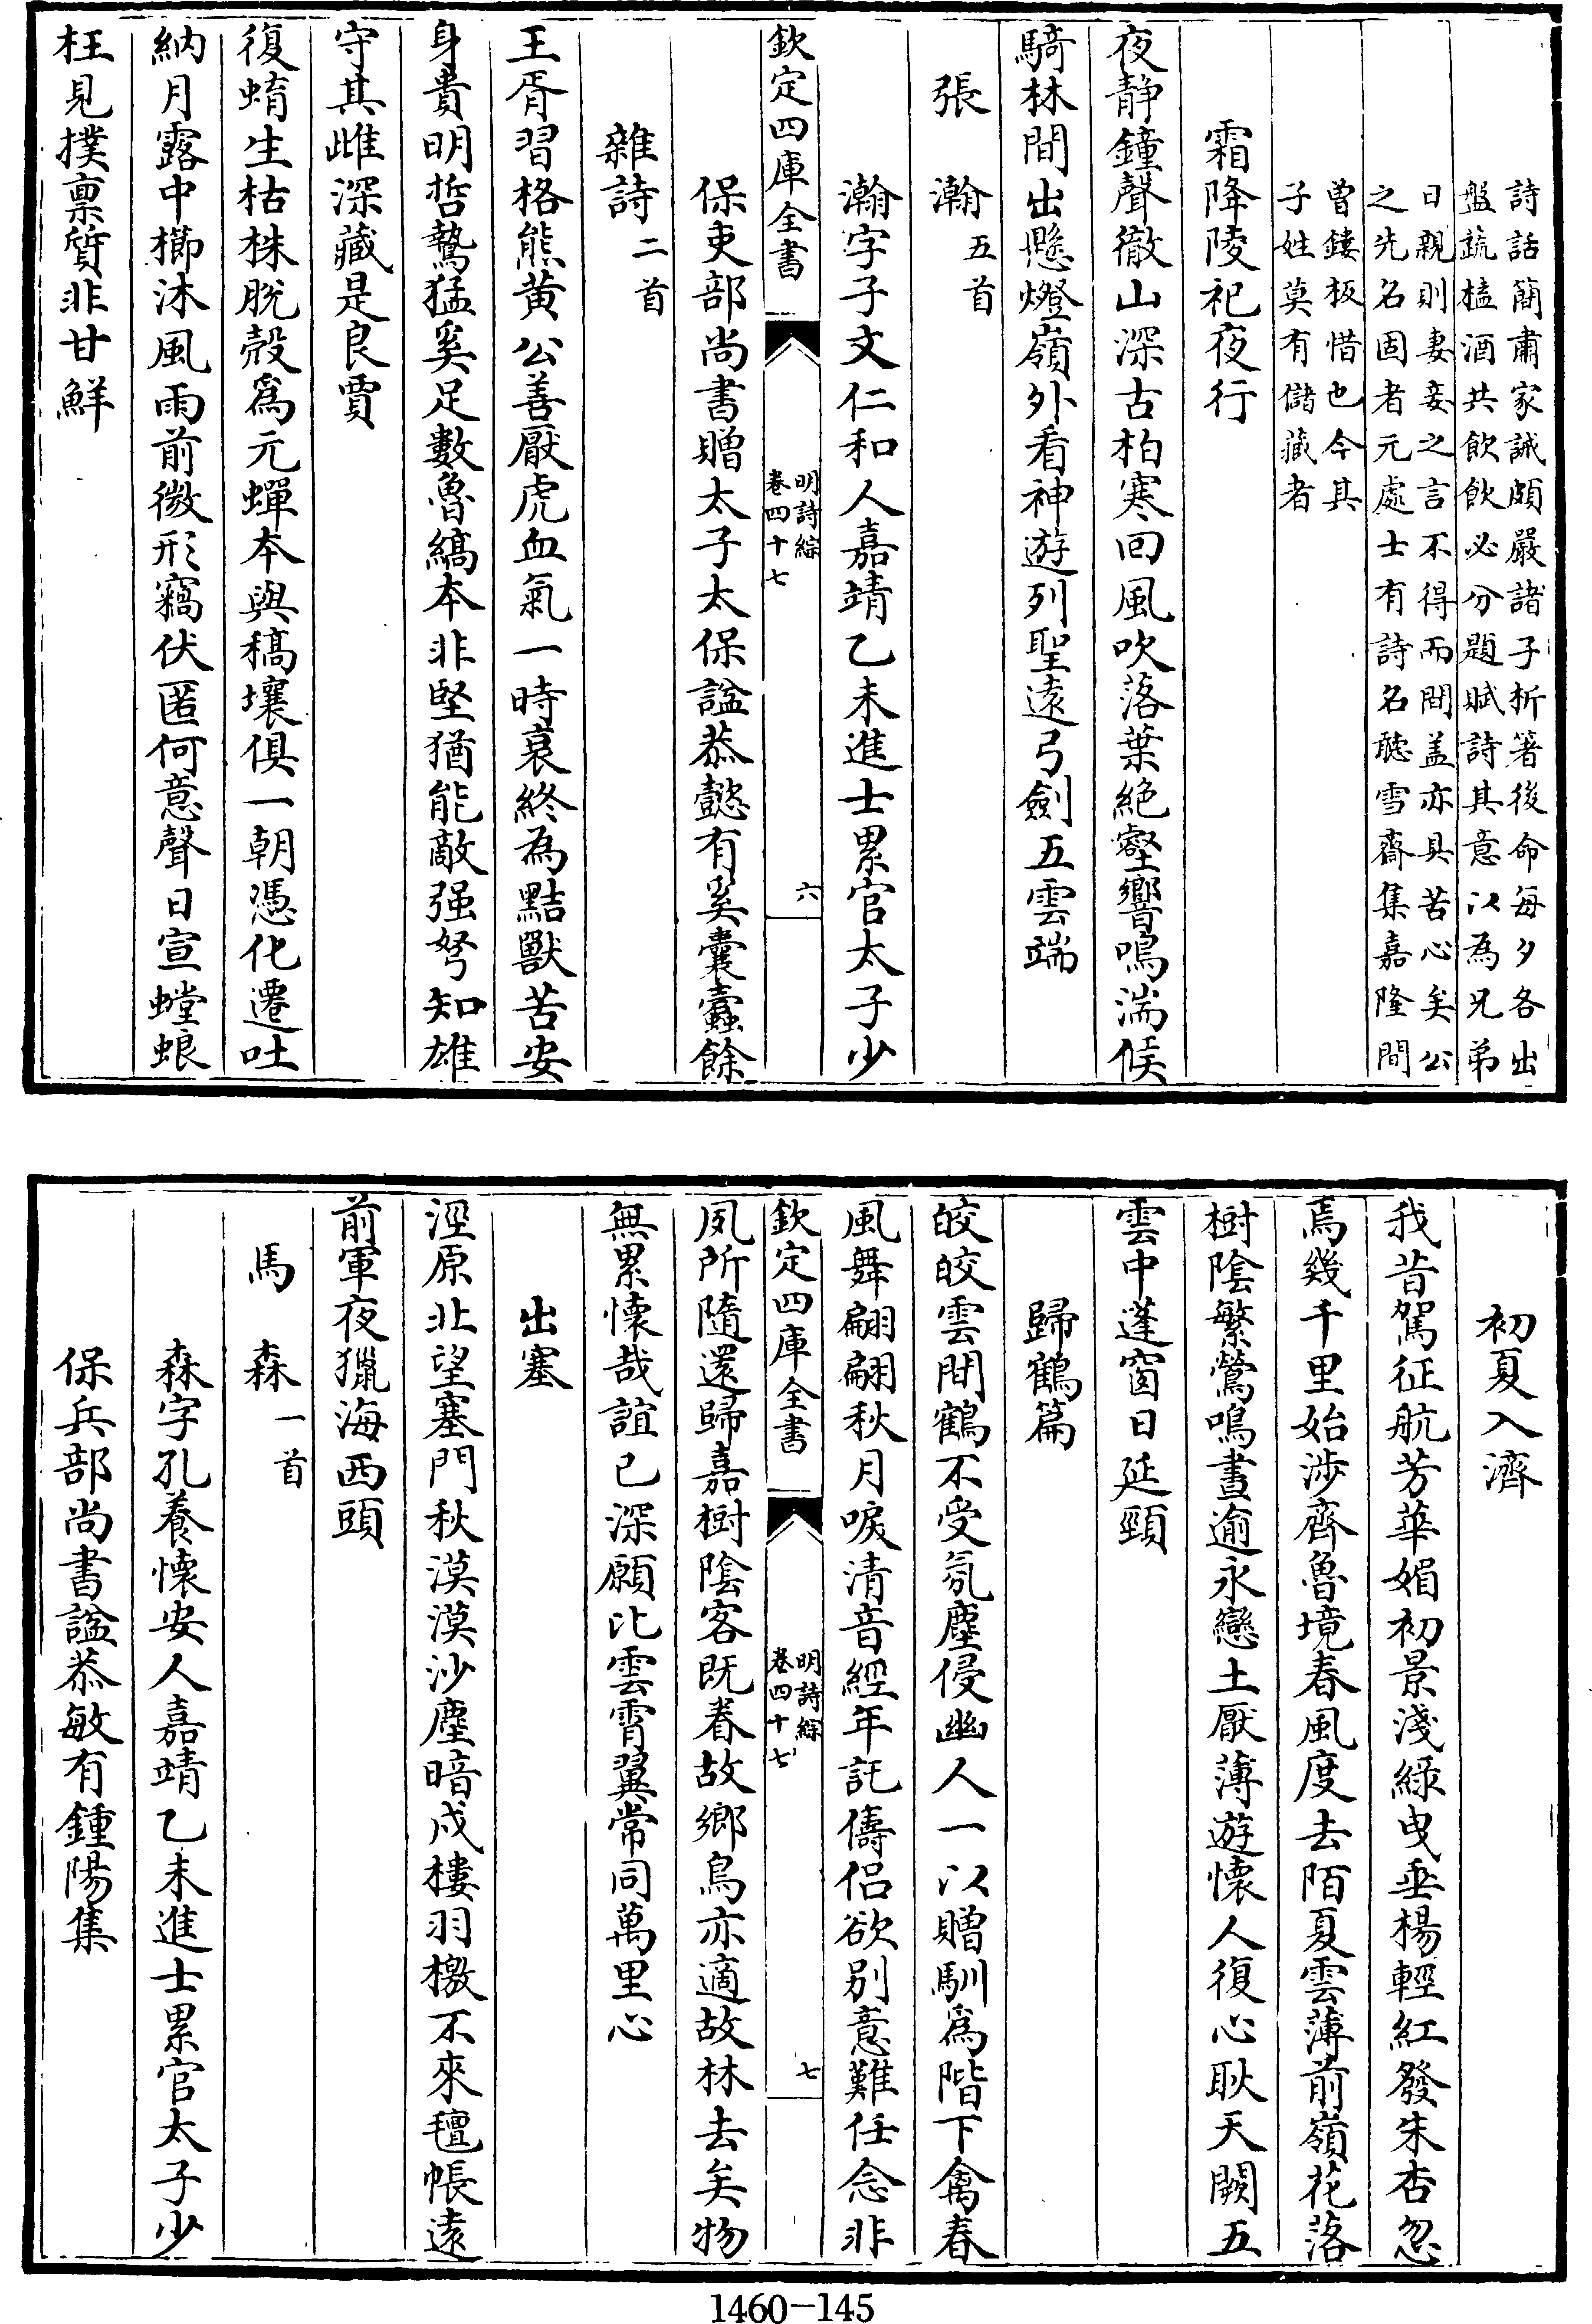 詩話簡肅家誡頗嚴諸子析箸後命每夕各出
盤蔬榼酒共飲飲必分題賦詩其意以為兄弟
日親則妻妾之言不得而間盖亦具苦心矣公
之先名固者元處士有詩名聽雪齋集嘉隆間
曾鏤板惜也今其
子姓莫有儲藏者
霜降陵祀夜行
夜靜鐘聲徹山深古柏寒回風吹落葉絶壑響鳴湍候
騎林間出懸燈嶺外看神遊列聖遠弓劍五雲端
張瀚五首
瀚字子文仁和人嘉靖乙未進士累官太子少
欽定四庫全書
明詩綜
卷四十七
六
保吏部尚書贈太子太保諡恭懿有奚囊蠹餘
雜詩二首
王胥習格熊黄公善厭虎血氣一時衰終為黠獸苦安
身貴明哲鷙猛奚足數魯縞本非堅猶能敵强弩知雄
守其雌深藏是良賈
復蜟生枯株脫殻爲元蟬本與稿壤俱一朝憑化遷吐
納月露中櫛沐風雨前微形竊伏匿何意聲日宣螳蜋
枉見撲禀質非甘鮮
初夏入濟
我昔駕征航芳華媚初景淺綠曵垂楊輕紅發朱杏忽
焉幾千里始涉齊魯境春風度去陌夏雲薄前嶺花落
樹陰繁鶯鳴晝逾永戀土厭薄遊懷人復心耿天闕五
雲中蓬窗日延頸
歸鶴篇
皎皎雲間鶴不受氛塵侵幽人一以贈馴爲階下禽春
風舞翩翩秋月唳清音經年託儔侣欲别意難任念非
欽定四庫全書
明詩綜
卷四十七
七
夙所隨還歸嘉樹陰客既眷故鄉鳥亦適故林去矣物
無累懷哉誼已深願比雲霄翼常同萬里心
出塞
涇原北望塞門秋漠漠沙塵暗戍樓羽檄不來氊帳遠
前軍夜獵海西頭
馬森一首
森字孔養懷安人嘉靖乙未進士累官太子少
保兵部尚書諡恭敏有鍾陽集
1460-145